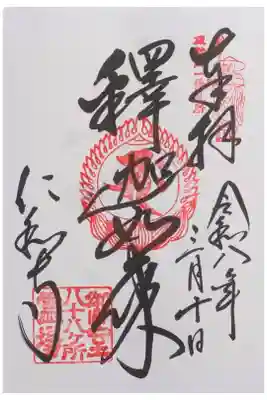 奉拝
令和八年
二月十日
釋迦如来
仁和寺
御室
八十八ヶ所
霊場